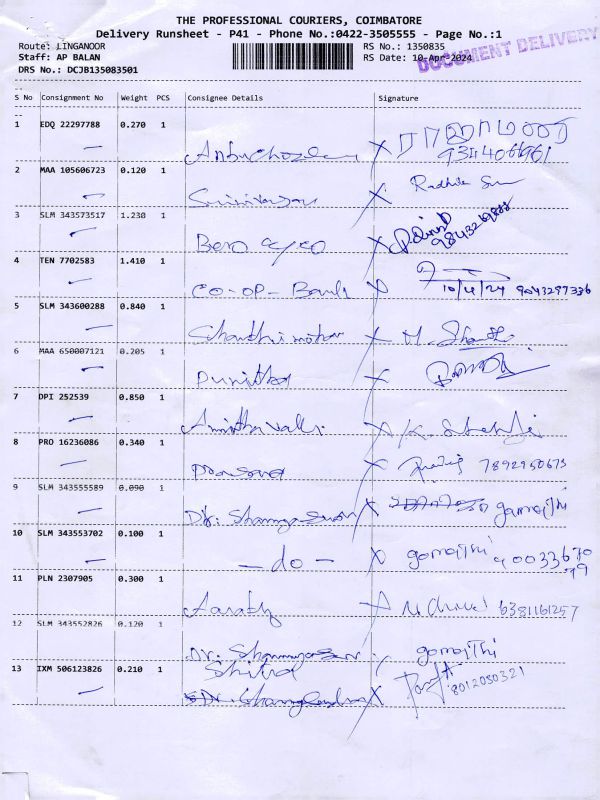 THE PROFESSIONAL COURIERS, COIMBATORE
Delivery Runsheet - P41 - Phone No.:0422-3505555 - Page No.:1
Route: LINGANOOR RS No.: 1350835
Staff: AP BALAN RS Date: 10-Apr-2024
DOCUMENT DELIVERY
DRS No.: DCJB135083501
S No Consignment No Weight PCS Consignee Details Signature
1 EDQ 22297788 0.270 1
2 MAA 105606723 0.120 1 Srinivasan Radhika
3 SLM 343573517 1.230 1 9843269888
4 TEN 7702583 1.410 1 CO-OP-Bank 10/4/24 9043297336
5 SLM 343600288 0.840 1 Shanthi mohan M. Shanthi
6 MAA 650007121 0.205 1 Punitha
7 DPI 252539 0.850 1 Amirthavalli K.
8 PRO 16236086 0.340 1 Prasanna 7892950673
9 SLM 343555589 0.090 1 Dr. Shanmugasundaram gomathi
10 SLM 343553702 0.100 1 - do - gomathi 9003367079
11 PLN 2307905 0.300 1 Aarathy 6381161257
12 SLM 343552826 0.120 1 Dr. gomathi
13 IXM 506123826 0.210 1 8012050321